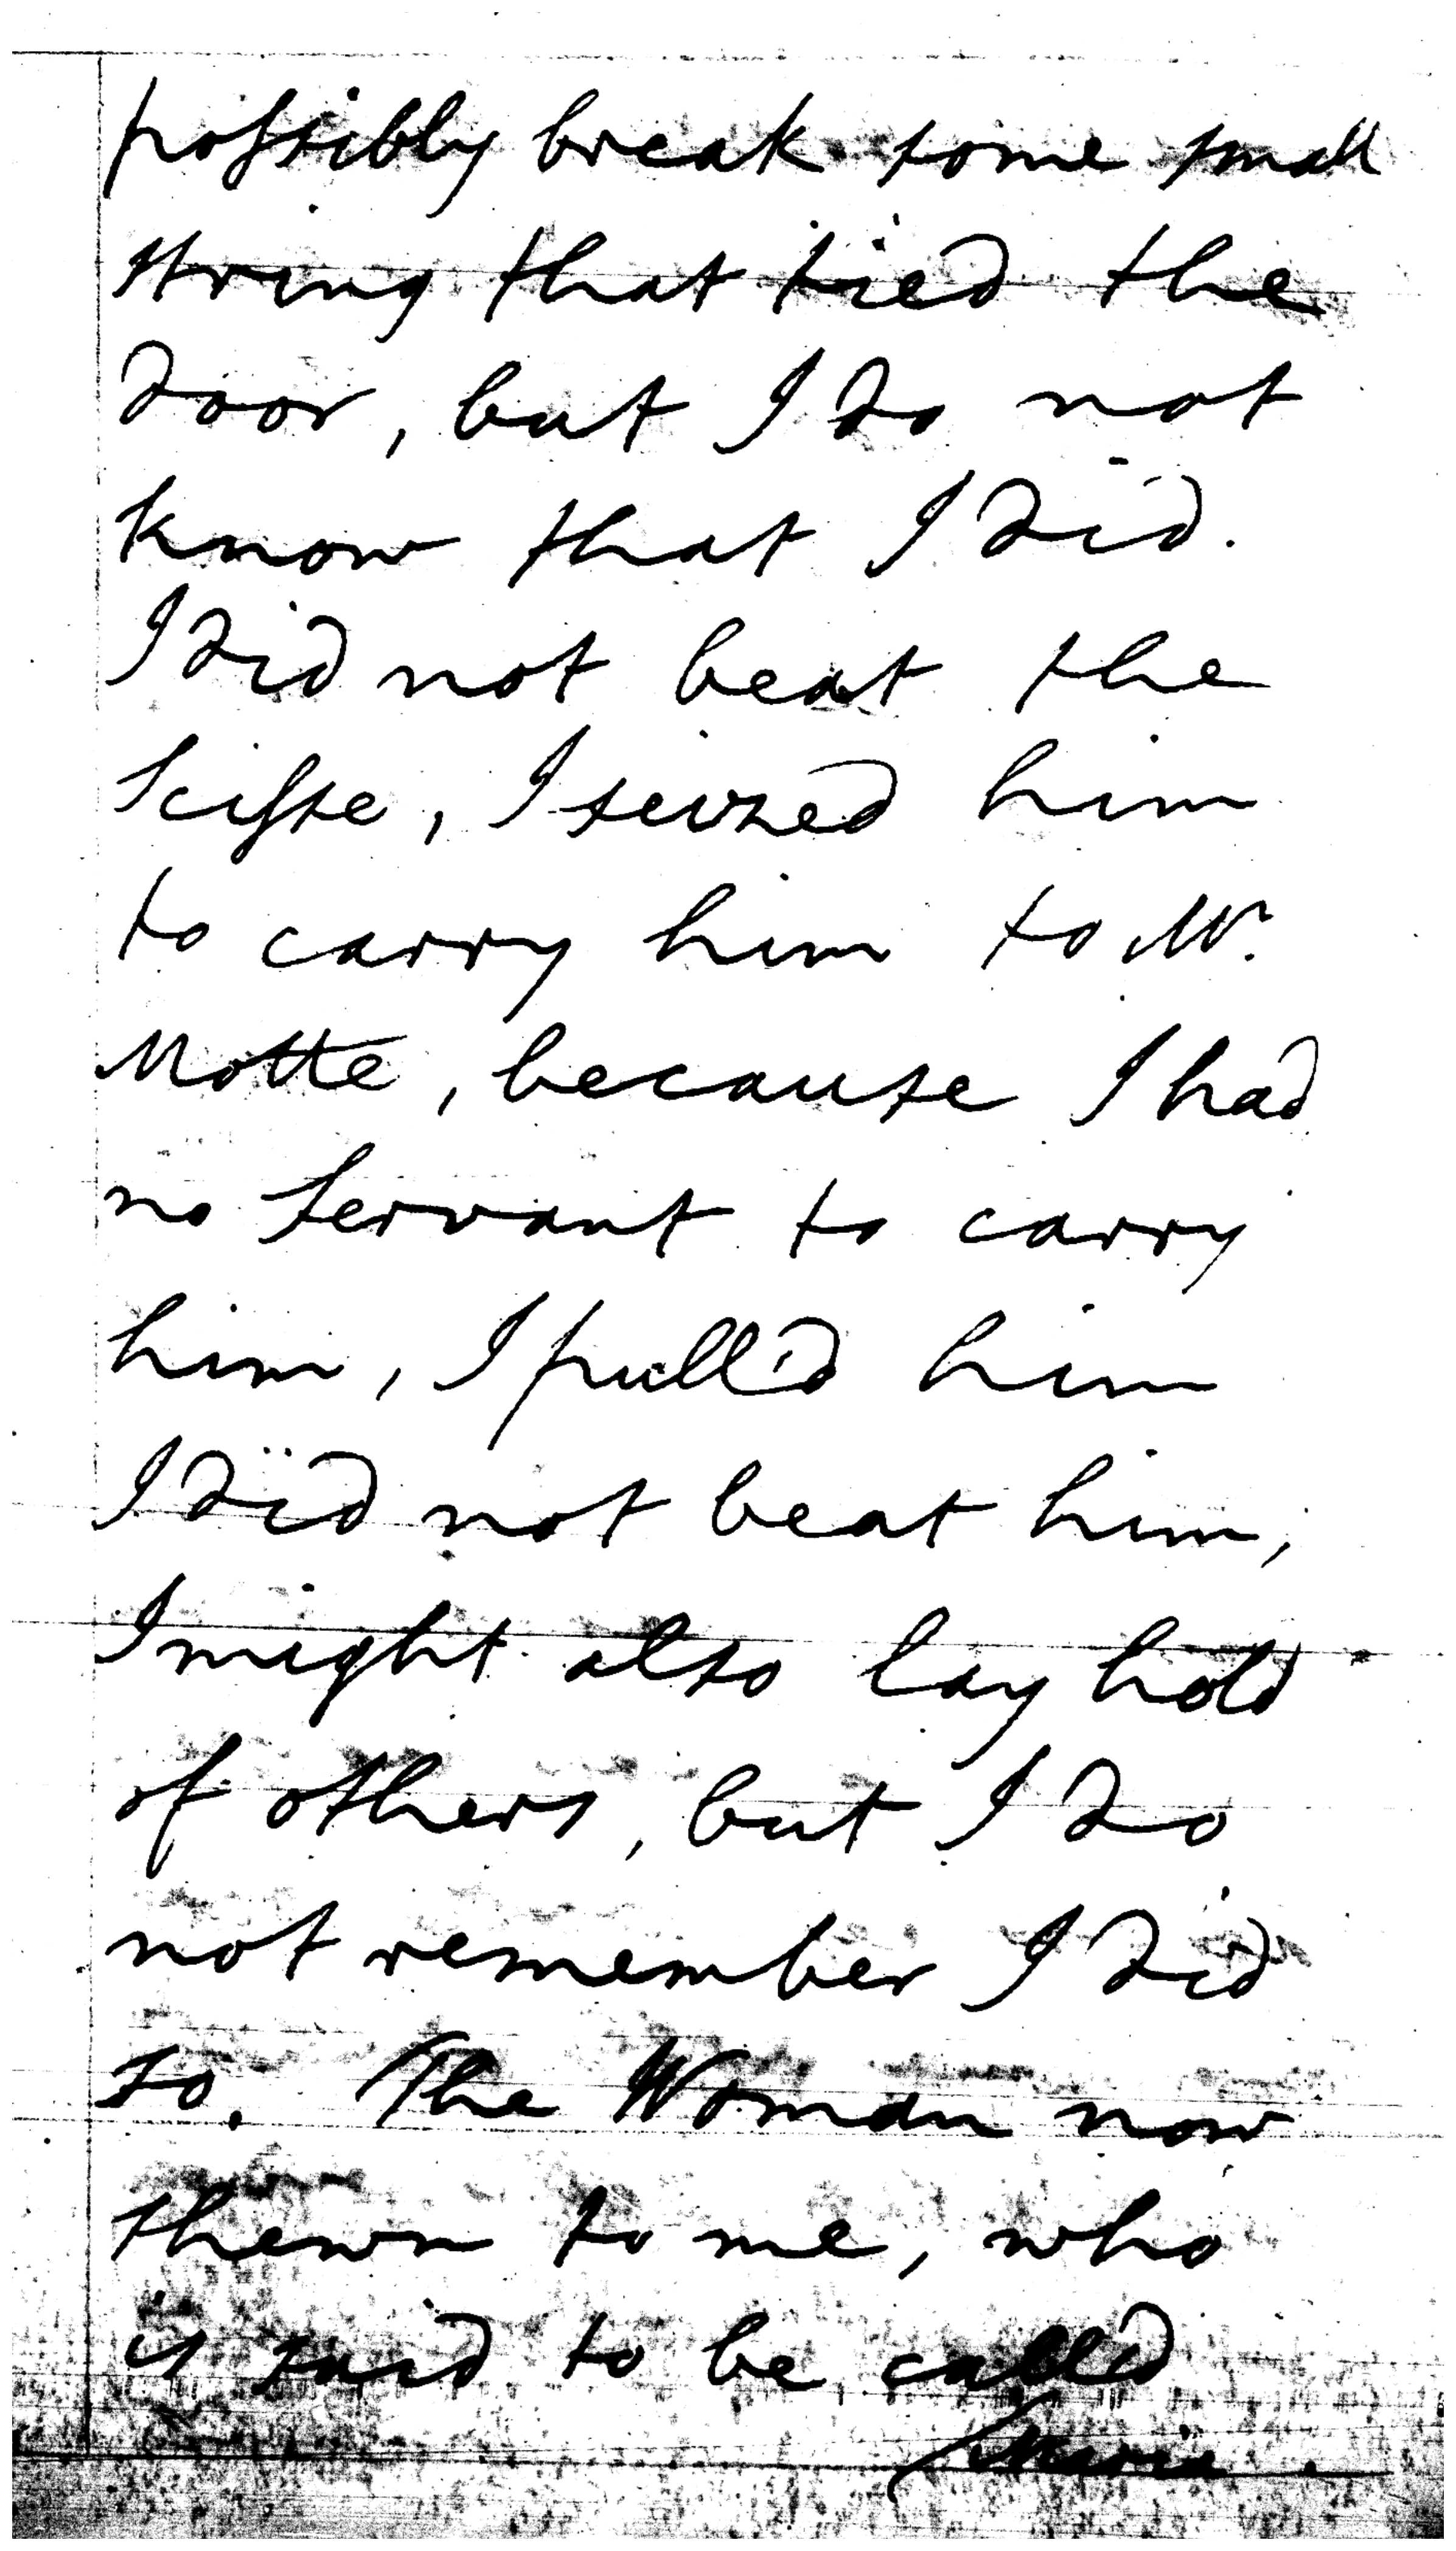 possibly break some small
string that tied the
door, but I do not
know that I did.
I did not beat the
Scisse, I seized him
to carry him to Mr.
Motte, because I had
no Servant to carry
him, I pull'd him
I did not beat him,
I might also lay hold
of others, but I do
not remember I did
so. The Woman now
shewn to me, who
is said to be call'd
Maria